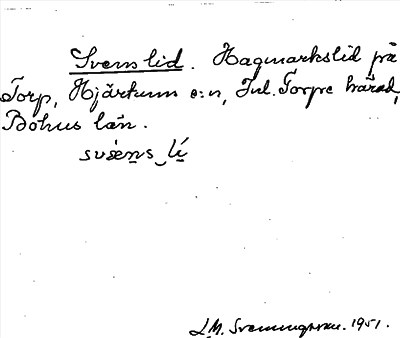 Svens lid. Hagmarkslid på
Torp, Hjärtum s:n, Inl. Torpe härad,
Bohus län.
svǽns_lí
J.M. Svenningsson. 1951.